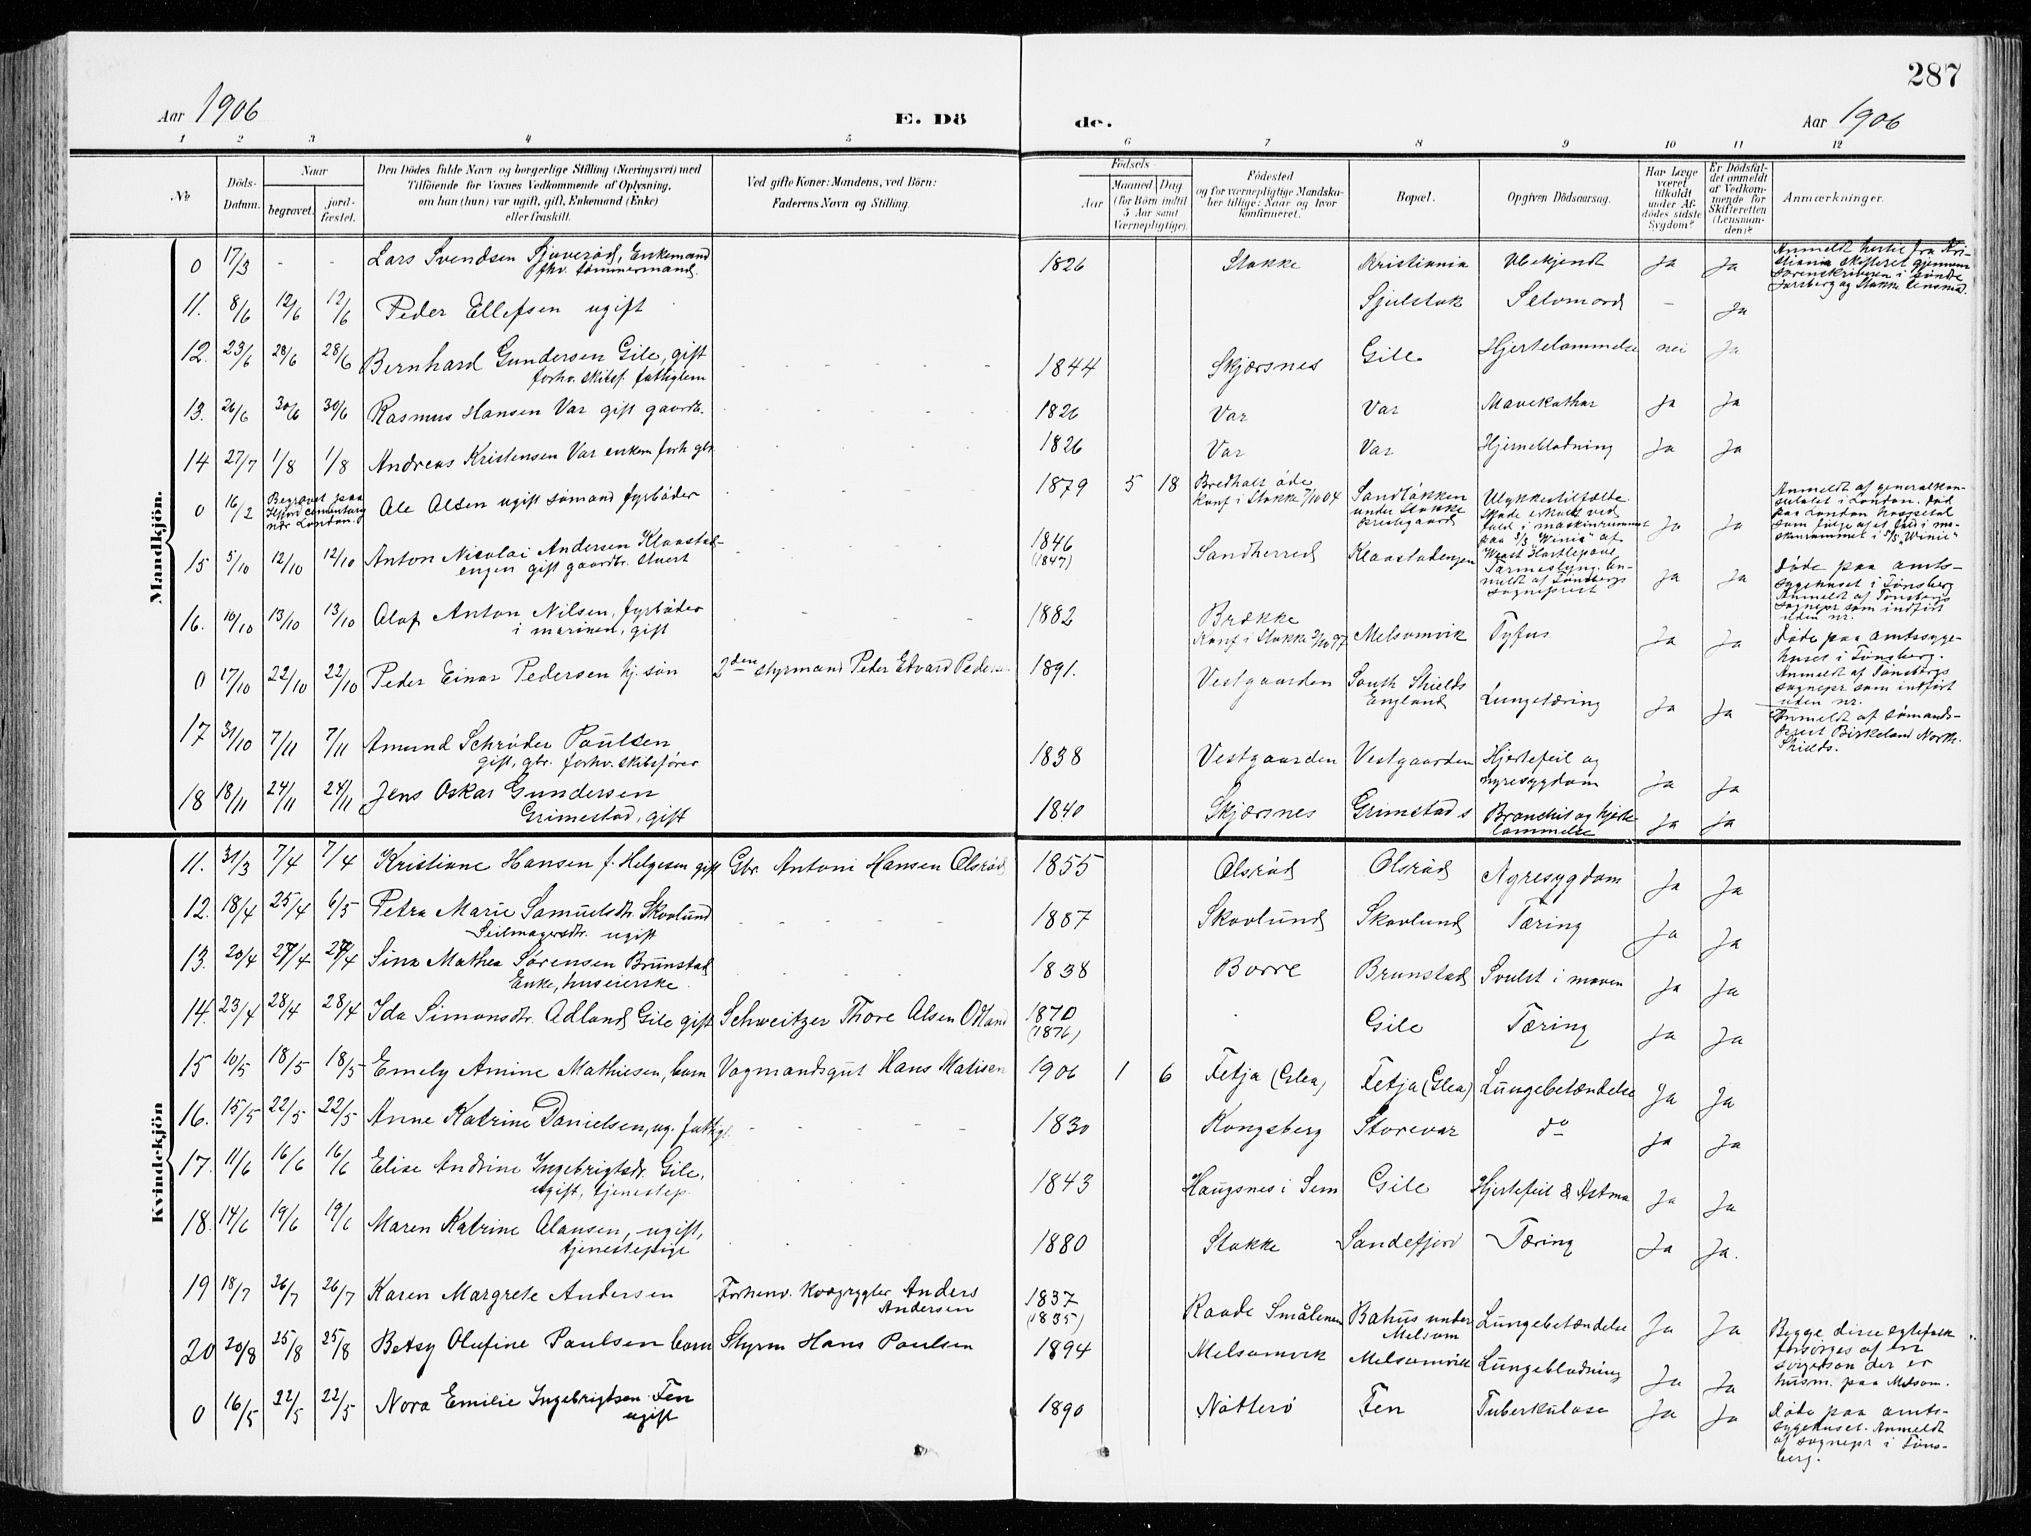 287
Aar 1906 E. Dö de. Aar 1906
1 2 3 4 5 6 7 8 9 10 11 12
№ Döds-Datum. Naar begravet. jord-fæstet. Den Dödes fulde Navn og borgerlige Stilling (Næringsvei) med Tilföiende for Voxnes Vedkommende af Oplysning, om han (hun) var ugift, gift, Enkemand (Enke) eller fraskilt. Ved gifte Koner: Mandens, ved Börn: Faderens Navn og Stilling. Födsels Aar Maaned Dag (for Børn indtil 5 Aar samt Værnepligtige). Födested og for værnepligtige Mandskaber tillige: Naar og hvor konfirmeret. Bopæl. Opgiven Dödsaarsag. Har Læge været tilkaldt under Afdödes sidste Sygdom? Er Dödsfaldet anmeldt af Vedkommende for Skifteretten (Lensmanden)? Anmærkninger.
Mandkjön.
0 17/3 - - Lars Svendsen Enkemand fhv. tømmermand 1826 Stokke Kristiania Ubekjendt Ja Ja
11. 8/6 12/6 12/6 Peder Ellefsen ugift Sjulstok Selvmord - Ja
12. 23/6 28/6 28/6 Bernhard Gundersen Gile, gift forhv. skibsf. fattiglem 1844 Skjærsnes Gile Hjertelammelse nei Ja
13. 26/6 30/6 30/6 Rasmus Hansen Var gift gaardbr. 1826 Var Var Mavekathar Ja Ja
14 27/7 1/8 1/8 Andreas Kristensen Var enkem forh gbr 1826 Var Var Hjerneblødning Ja Ja
0 16/2 Begravet paa nær London. Ole Olsen ugift sømand fyrbøder 1879 5 18 Bredholt øde Konf i Stokke 2/10 04 Sandløkken under Stokke prestegaard Ulykkestilfælde fald i maskinrummet paa S/S "Winie" af West Hartlepool Ja Ja Anmeldt af generalkonsulatet i London. Død paa London hospital som følge af et fald i maskinrummet i S/S "Winie"
15 5/10 12/10 12/10 Anton Nicolai Andersen Klaastadengen gift gaardbr. 1846 (1847) Sandherred Klaastadengen anmeldt af Tønsbergs sogneprest Ja Ja Døde paa amtssygehuset i Tønsberg Anmeldt af Tønsbergs sognepr som indført uden nr.
16. 10/10 13/10 13/10 Olaf Anton Nilsen, fyrbøder i marinen, gift 1882 Brække Konf i Stokke 3/10 97 Melsomvik Tyfus Ja Ja Døde paa amtssygehuset i Tønsberg. Anmeldt af Tønsbergs sognepr som indført uden nr.
0 17/10 22/10 22/10 Peder Einar Pedersen hj. søn 2den styrmand Peder Edvard Pedersen 1891. Vestgaarden South Shields England Lungetæring Ja Ja Anmeldt af sømandsprest Birkeland North Shields.
17 31/10 7/11 7/11 Amund Schrøder Paulsen gift, gbr. forhv. skibsfører 1838 Vestgaarden Vestgaarden Hjertefeil og nyresygdom Ja Ja
18 18/11 24/11 24/11 Jens Oskar Gundersen Grimestad, gift 1840 Skjærsnes Grimstad s Bronchit og hjertelammelse Ja Ja
Kvindekjön
11. 31/3 7/4 7/4 Kristiane Hansen f. Helgesen gift Gbr. Antoni Hansen Olsrød 1855 Olsrød Olsrød Nyresygdom Ja Ja
12. 18/4 25/4 6/5 Petra Marie Samuelsdtr. Skovlund Seilmagersdtr. ugift 1887 Skovlund Skovlund Tæring Ja Ja
13. 20/4 27/4 27/4 Sina Mathea Sørensen Brunstad Enke, huseierske 1838 Borre Brunstad Svulst i maven Ja Ja
14. 23/4 28/4 28/4 Ida Simonsdtr. Adland Gile gift Schweitzer Thore Olsen Odland 1870 (1876) Gile Tæring Ja Ja
15 10/5 18/5 18/5 Emely Amine Mathiesen, barn Vogmandsgut Hans Matisen 1906 1 6 Fetja (Glea) Fetja (Glea) Lungebetændelse Ja Ja
16. 15/5 22/5 22/5 Anne Katrine Danielsen, ug. fattigl. 1830 Kongsberg Storevar do Ja Ja
17. 11/6 16/6 16/6 Elise Andrine Ingebrigtsdr. Gile, ugift, tjenestep. 1843 Haugsnes i Sem Gile Hjertefeil & Astma Ja Ja
18. 14/6 19/6 19/6 Maren Katrine Olausen, ugift, tjenestepige 1880 Stokke Sandefjord Tæring Ja Ja.
19 18/7 26/7 26/7 Karen Margrete Andersen Forhenv. Anders Andersen 1837 (1835) Raade Smålenen Bahus under Melsom Lungebetændelse Ja Ja Begge disse ægtefolk forsørges af en søn der er husm. paa Melsom.
20 20/8 25/8 25/8 Betsy Olufine Paulsen barn Styrm Hans Paulsen 1894 Melsomvik Melsomvik Lungeblødning Ja Ja
0 16/5 22/5 22/5 Nora Emilie Ingebrigtsen Fen ugift 1890 Nøtterø Fen Tuberkulose Ja Ja Døde paa amtssygehuset. Anmeldt af sognepr i Tønsberg.